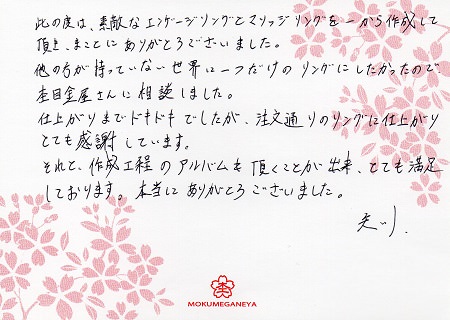 此の度は、素敵なエンゲージリングとマリッジリングを一から作成して
頂き、まことにありがとうございました。
他の方が持っていない世界に一つだけのリングにしたかったので
杢目金屋さんに相談しました。
仕上がりまでドキドキでしたが、注文通りのリングに仕上がり
とても感謝しています。
それと、作成工程のアルバムを頂くことが出来、とても満足
しております。本当にありがとうございました。
MOKUMEGANEYA